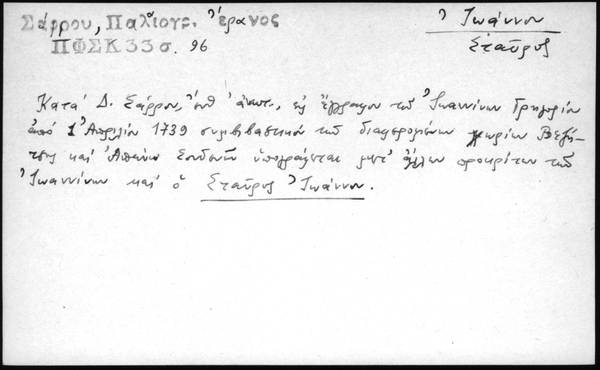 Σάρρου, Παλαιογρ. Ἔρανος
ΠΦΣΚ 33 σ. 96
Ἰωάννου
Σταῦρος
Κατά Δ. Σάρρου, ἔνθ' ἀνωτ., εἰς ἔγγραφον τοῦ Ἰωαννίνων Γρηγορίου
ἀπό 1 Ἀπριλίου 1739 συμβιβαστικόν τῶν διαφερομένων χωρίων
καί ὑπογράφεται μετ' ἄλλων προκρίτων τῶν
Ἰωαννίνων καί ὁ Σταῦρος Ἰωάννου.